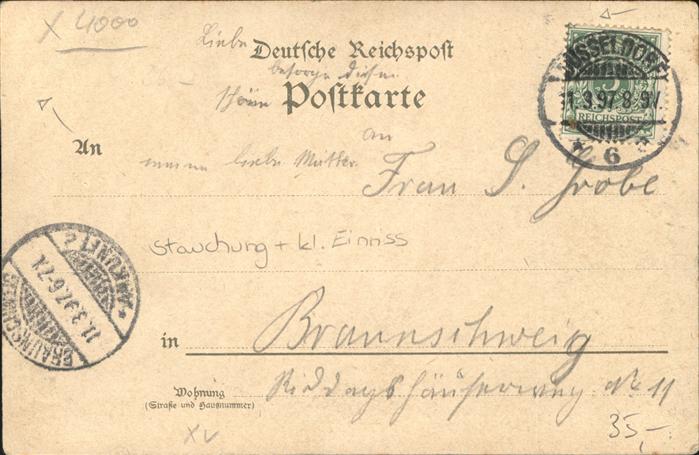 X 4000
Liebe
Deutsche Reichspost
besorge diese
Postkarte
an
An
meine liebe Mutter.
Frau S. Grobe
Stauchung + kl. Einriss
in Braunschweig
Wohnung
(Straße und Hausnummer)
Riddagshäuserweg No 11
XV
35,-
DÜSSELDORF
11.3.97.8-9V.
6
REICHSPOST
BRAUNSCHWEIG
11.3.97.6-7N.
ANKUNFT